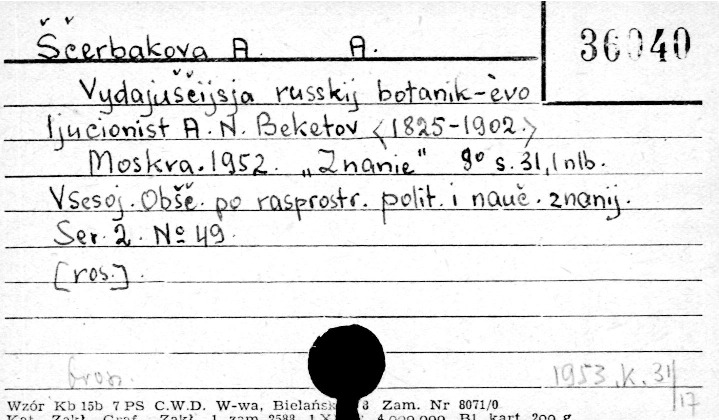 Ščerbakova A. A.
36040
Vydajuščijsja russkij botanik-èvo
ljucionist A. N. Beketov <1825-1902.>
Moskva. 1952. „Znanie" 8° s. 31, 1 nlb.
Vsesoj. Obšč. po rasprostr. polit. i nauč. znanij.
Ser. 2. Nº 49.
[ros.].
brosz. 1953. K. 31/17
Wzór Kb 15b 7 PS C.W.D. W-wa, Bielańsk 8 Zam. Nr 8071/0
Kat. Zakł. Graf. Zakł. 1 zam. 2588 4.000.000 Bl. kart. 200 g.